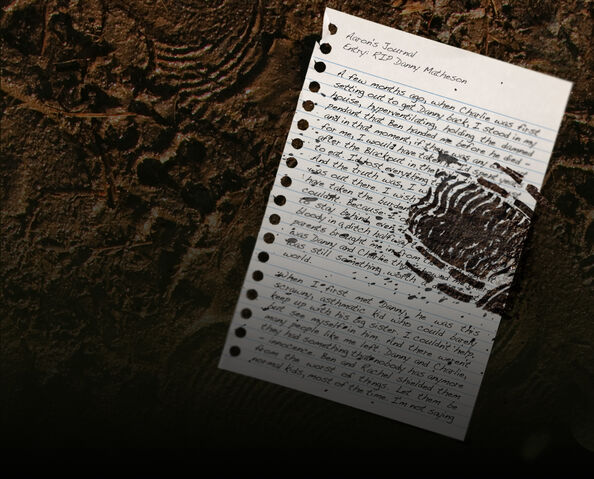 Aaron's Journal
Entry: RIP Danny Matheson
A few months ago, when Charlie was first
setting out to get Danny back, I stood in my
house, hyperventilating, holding the dummy
pendant that Ben handed me before he died -
and in that moment, if there was any
for me, I would have
after the Blackout in the
to eat. I lost everything
And the truth was, I
was out there. I
have taken the
couldn't. Because
to stay behind, even
bloody in a ditch halfway
parents brought me in from
was Danny and Charlie
was still something worth
world.
When I first met Danny, he was this
scrawny, asthmatic kid who could barely
keep up with his big sister. I couldn't help,
but see myself in him. And there weren't
many people like me left. Danny and Charlie,
they had something that nobody has anymore
- innocence. Ben and Rachel shielded them
from the worst of things. Let them be
normal kids, most of the time. I'm not saying